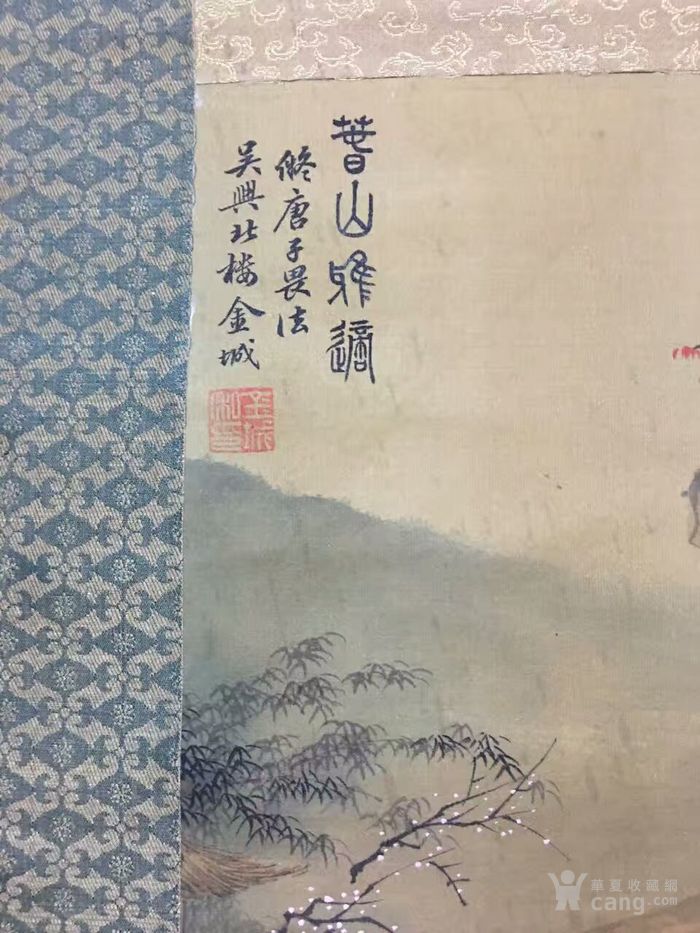 春山雅適
唐子畏法
吳興北楼金城
金城私印
華夏收藏網
cang.com